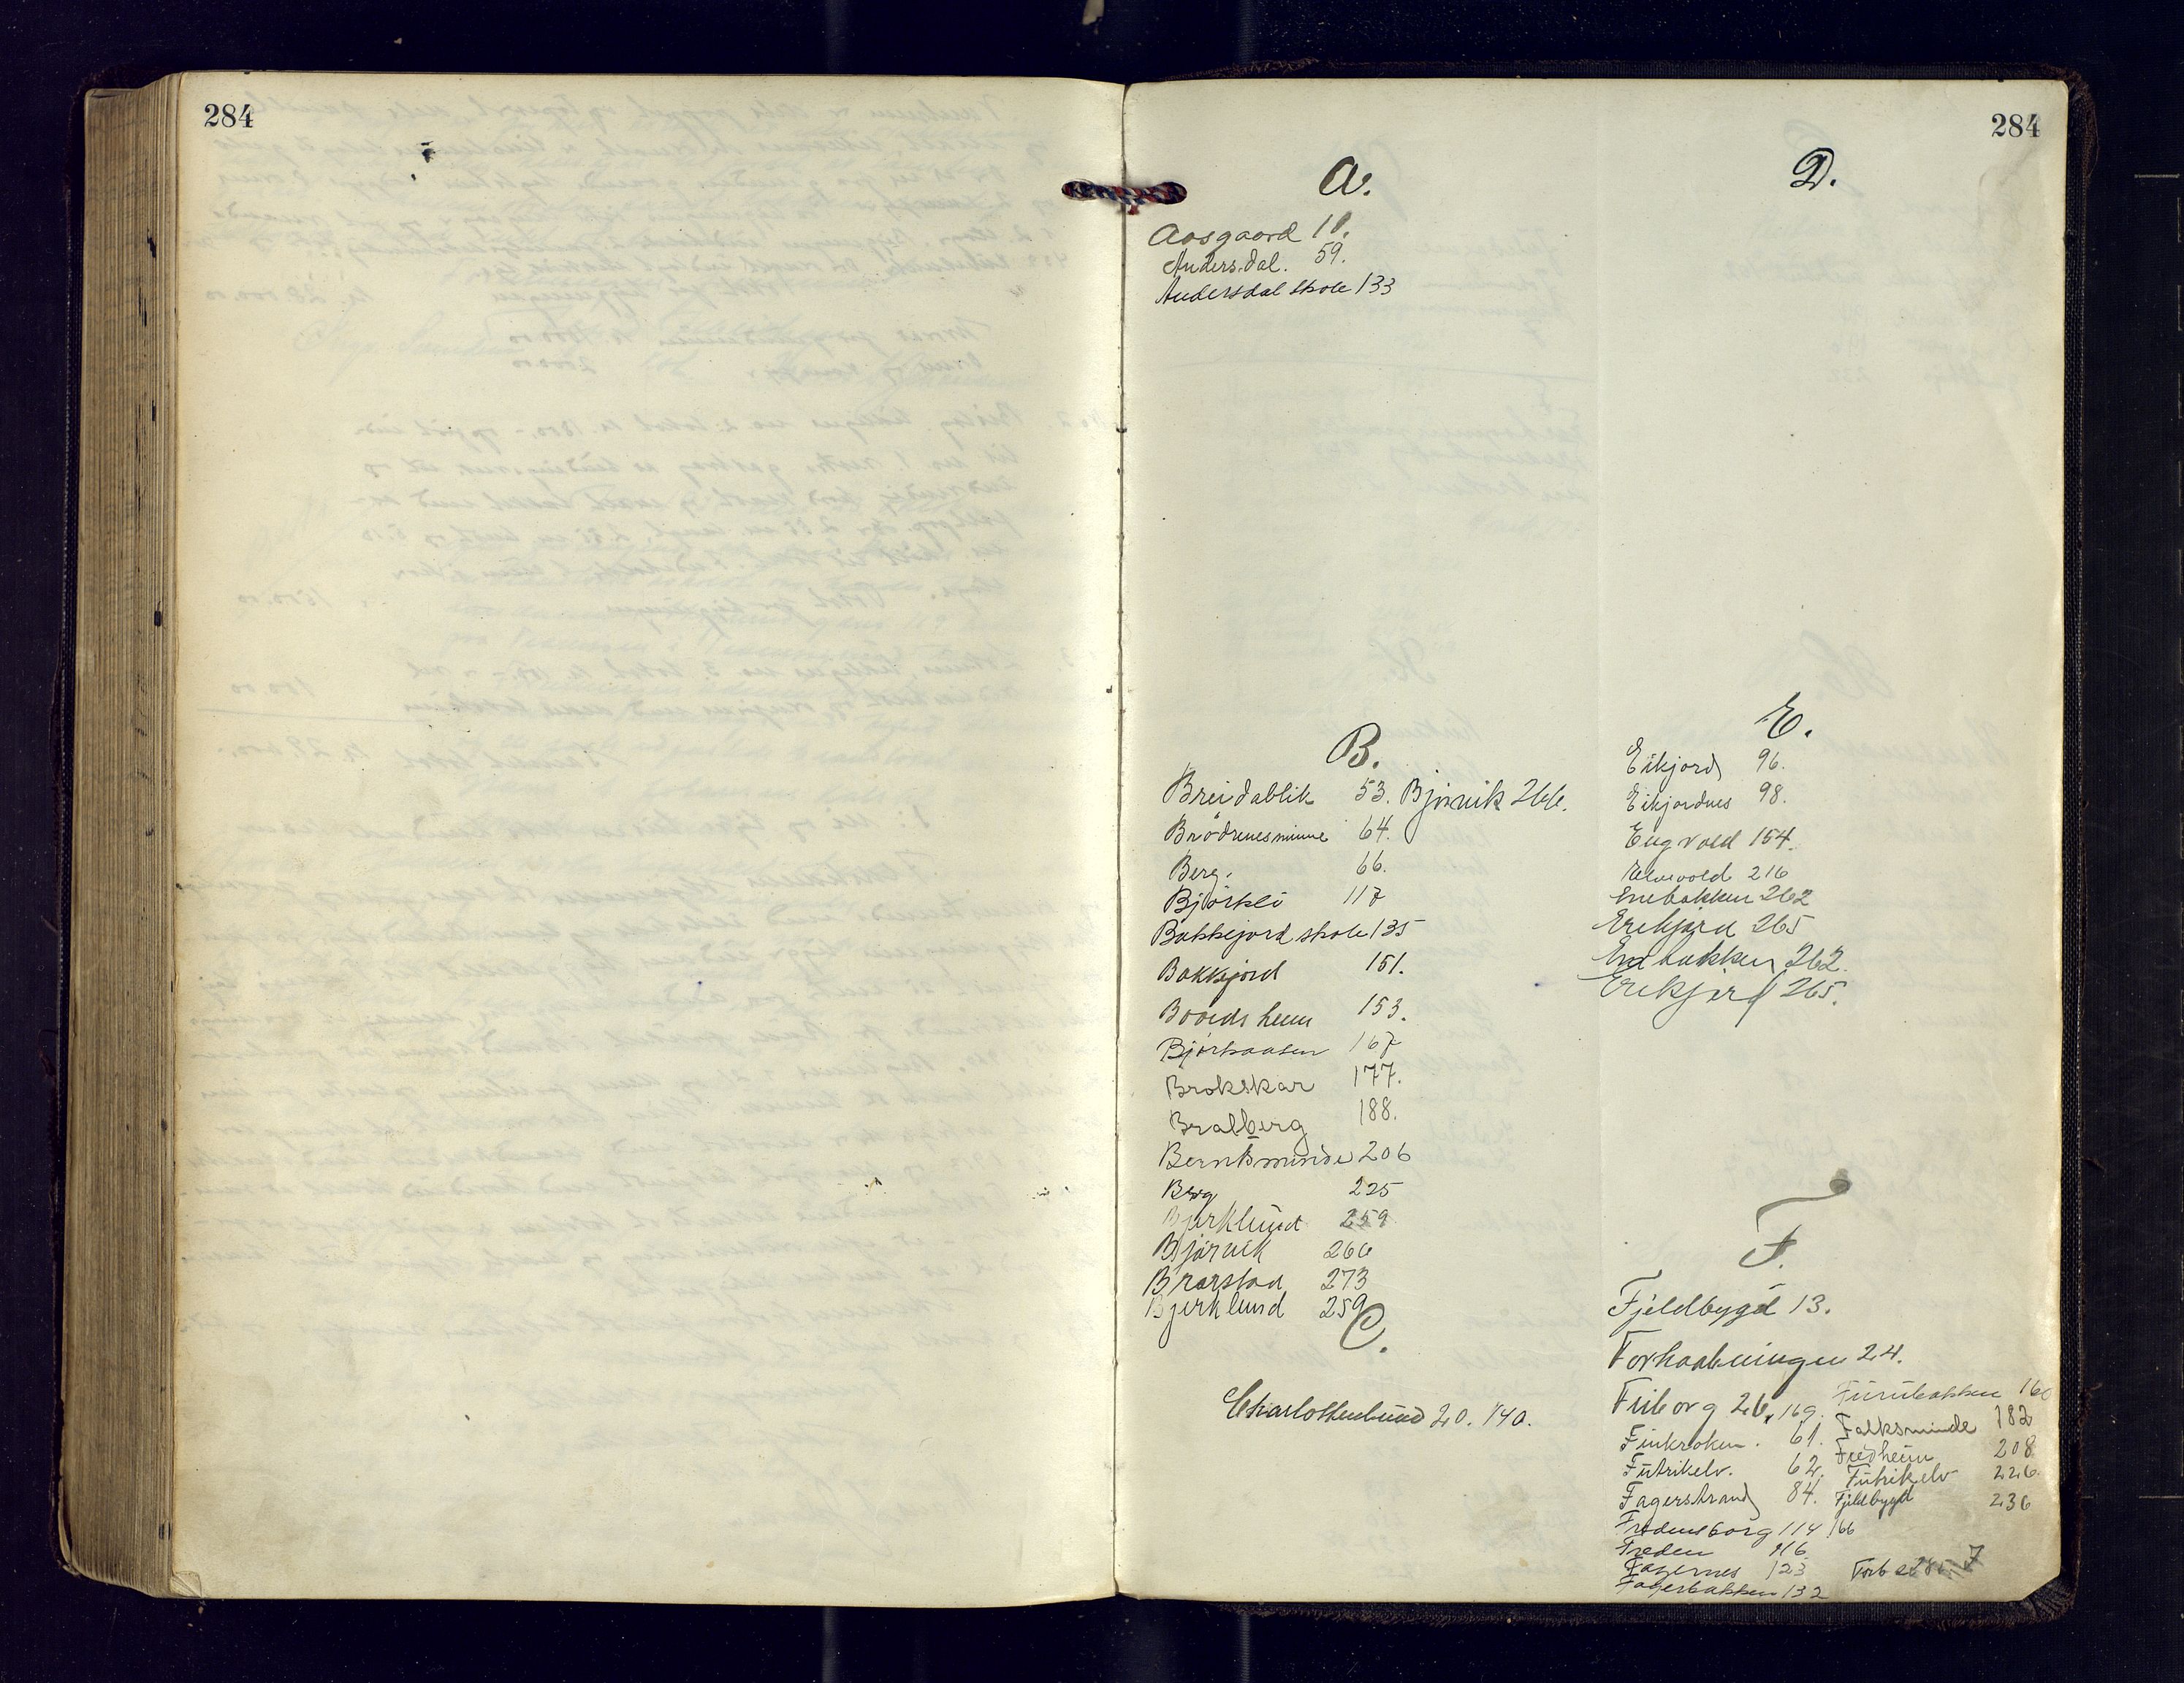 284
284
A.
Aasgaard 10.
Andersdal. 59.
Andersdal skole 133
B.
Breidablik 53. Bjørnvik 266.
Brødrenesminne 64.
Berg. 66.
Bjørkli 117
Bakkejord skole 135
Bakkejord 151.
Baardsheim 153.
Bjørkaasen 167
Brokskar 177.
Bratberg 188.
Berntsminde 206
Berg 225
Bjerklund 259
Bjørvik 266
Brarstad 273
Bjerklund 259
C.
Charlottenlund 20. 140.
D.
E.
Eikjord 96.
Eikjordnes 98.
Engvold 154.
Elvevold 216
Enebakken 262
Erikjord 265
Enebakken 262.
Erikjord 265.
F.
Fjeldbygd 13.
Forhaabningen 24.
Friborg 26, 169. Furubakken 160
Finkroken. 61. Falksminde 182
Futrikelv. 62. Fredheim 208
Fagerstrand 84. Futrikelv 226.
Fjeldbygd 236
Fredensborg 114 166
Freden 116
Fagernes 123 Forts
Fagerbakken 132